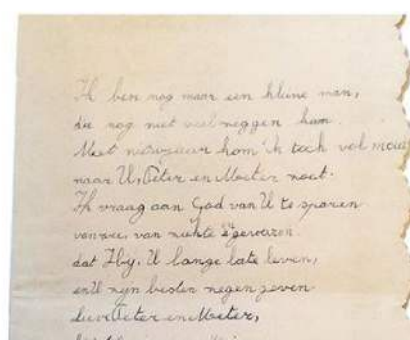 Ik ben nog maar een kleine man,
die nog niet veel zeggen kan.
Met nieuwjaar kom 'k toch vol moed
naar U, Peter en Meter
Ik vraag aan God van U te sparen
van wee, van ziekte
dat Hy, U lange late leven,
en U zyn besten zegen geven
lieve Peter en Meter,